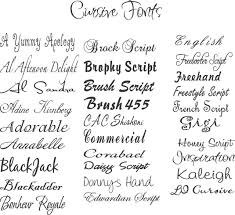 Cursive Fonts
A Yummy Apology
Al Afternoon Delight
Alako
Adine Kirnberg
Adorable
Annabelle
BlackJack
Blackadder
Bonheur Royale
Brock Script
Brophy Script
Brush Script
Brush 455
C.A.C. Shishoni
Commercial
Corabael
Daisy Script
Donnys Hand
Edwardian
English
Freebooter Script
Freehand
Freestyle Script
French Script
Gigi
Honey Script
Inspiration
Kaleigh
LD Cursive